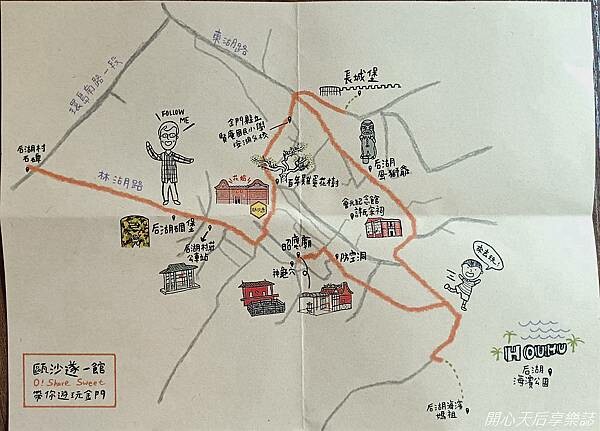 東湖路
環島南路一段
長城堡
FOLLOW
ME
金門縣立
賢庵國民小學
垵湖分校
后湖村
石碑
林湖路
百年雞蛋花樹
后湖
風獅爺
會元紀念館
許氏宗祠
后湖碉堡
后湖村莊
公車站
昭應廟
神龜穴
防空洞
來去玩!
HOUHU
后湖
海濱公園
后湖海濱
媽祖
甌沙遂一館
O! Share Sweet
帶你遊玩金門
開心天后享樂誌